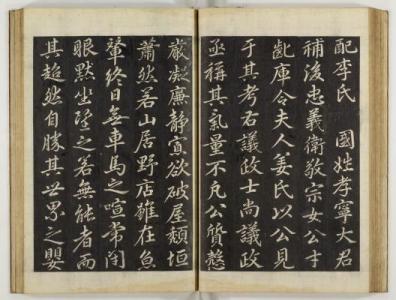 配李氏　國姓孝寧大君
補後忠義衛敬宗女公才
齔庫令夫人姜氏以公見
于其考右議政士尚議政
亟稱其氣量不凡公質愨
嚴凝廉靜寡欲破屋頹垣
蕭然若山居野店雖在京
輦終日無車馬之喧常閉
眼默坐望之若無能者而
其超然自勝其世累之嬰